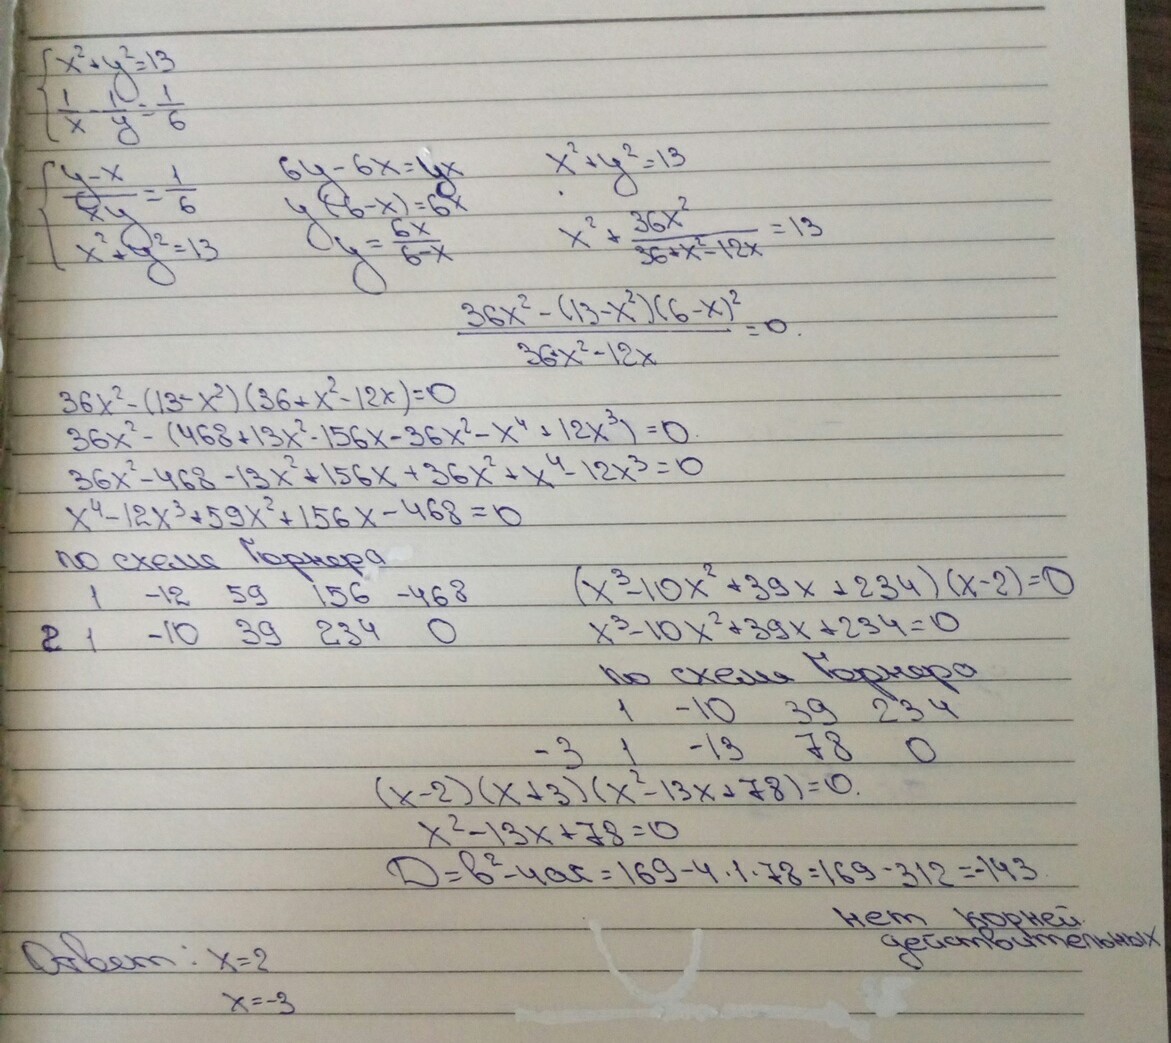 x²+y²=13
1/x - 1/y = 1/6
(y-x)/(xy) = 1/6
x²+y²=13
6y-6x=yx
y(6-x)=6x
y = 6x/(6-x)
x²+y²=13
x² + 36x²/(36+x²-12x) = 13
(36x²-(13-x²)(6-x)²)/(36+x²-12x) = 0.
36x²-(13-x²)(36+x²-12x)=0
36x²-(468+13x²-156x-36x²-x⁴+12x³)=0.
36x²-468-13x²+156x+36x²+x⁴-12x³=0
x⁴-12x³+59x²+156x-468=0
по схеме Горнера
1 -12 59 156 -468
2 1 -10 39 234 0
(x³-10x²+39x+234)(x-2)=0
x³-10x²+39x+234=0
по схеме Горнера
1 -10 39 234
-3 1 -13 78 0
(x-2)(x+3)(x²-13x+78)=0.
x²-13x+78=0
D=b²-4ac=169-4·1·78=169-312=-143
нет корней
действительных
Ответ: x=2
x=-3